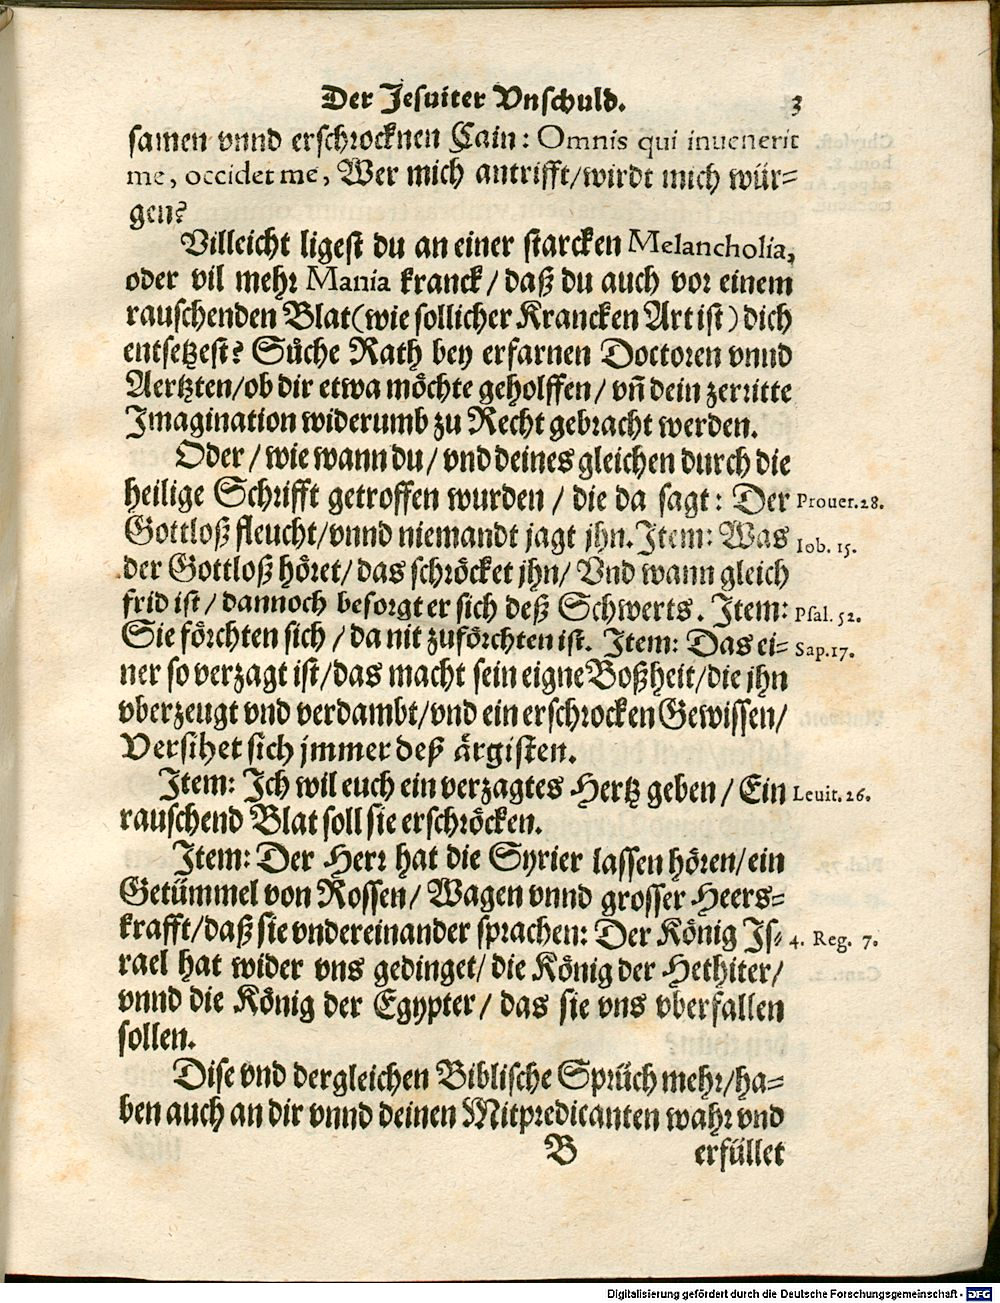 Der Jesuiter Vnschuld. 3
samen vnnd erschrocknen Cain: Omnis qui inuenerit
me, occidet me, Wer mich antrifft/wirdt mich wür-
gen?
Villeicht ligest du an einer starcken Melancholia,
oder vil mehr Mania kranck/daß du auch vor einem
rauschenden Blat(wie sollicher Krancken Art ist) dich
entsetzest? Süche Rath bey erfarnen Doctoren vnnd
Aertzten/ob dir etwa möchte geholffen/vñ dein zerritte
Imagination widerumb zu Recht gebracht werden.
Oder/wie wann du/vnd deines gleichen durch die
heilige Schrifft getroffen wurden/die da sagt: Der Prouer.28.
Gottloß fleucht/vnnd niemandt jagt jhn. Item: Was Iob. 15.
der Gottloß höret/das schröcket jhn/Vnd wann gleich
frid ist/dannoch besorgt er sich deß Schwerts. Item: Psal. 52.
Sie förchten sich/da nit zuförchten ist. Item: Das ei- Sap.17.
ner so verzagt ist/das macht sein eigne Boßheit/die jhn
vberzeugt vnd verdambt/vnd ein erschrocken Gewissen/
Versihet sich jmmer deß ärgisten.
Item: Ich wil euch ein verzagtes Hertz geben/Ein Leuit. 26.
rauschend Blat soll sie erschröcken.
Item: Der Herr hat die Syrier lassen hören/ein
Getümmel von Rossen/Wagen vnnd grosser Heers-
krafft/daß sie vndereinander sprachen: Der König Is- 4. Reg. 7.
rael hat wider vns gedinget/die König der Hethiter/
vnnd die König der Egypter/das sie vns vberfallen
sollen.
Dise vnd dergleichen Biblische Sprüch mehr/ha-
ben auch an dir vnnd deinen Mitpredicanten wahr vnd
B erfüllet
Digitalisierung gefördert durch die Deutsche Forschungsgemeinschaft - DFG